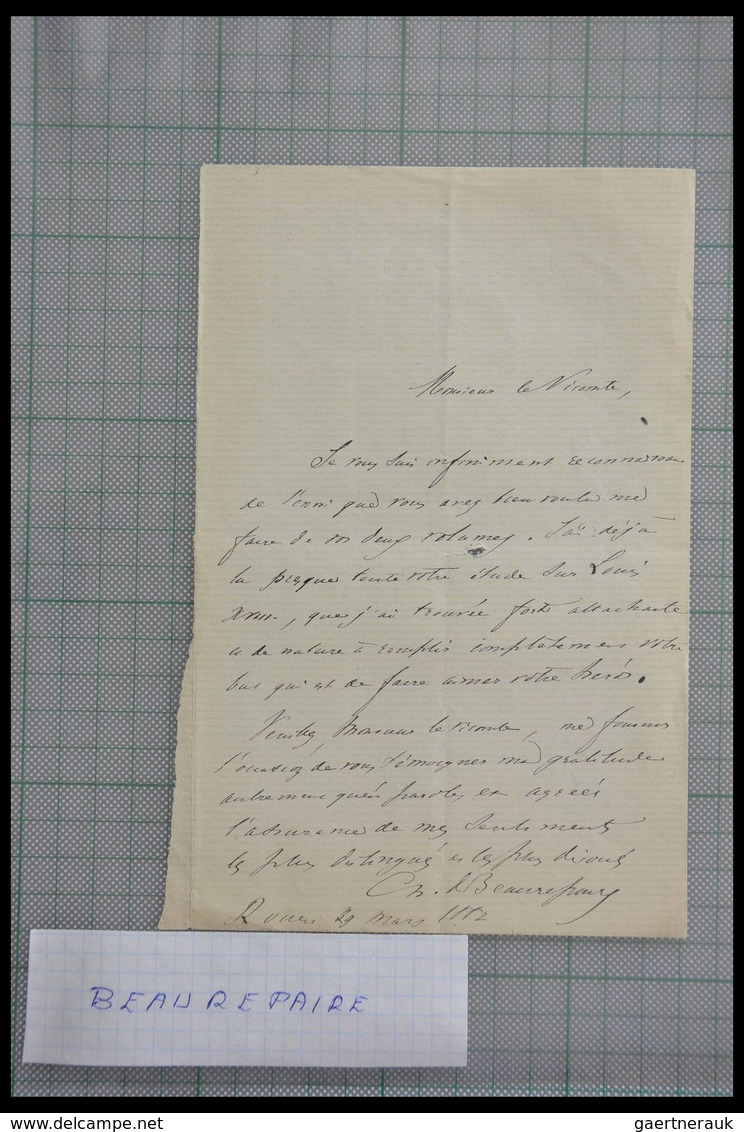 Monsieur le Vicomte,
Je vous suis infiniment reconnaissant
de l'envoi que vous avez bien voulu me
faire de vos deux volumes. J'ai déjà
lu presque toute votre étude sur Louis
XVIII, que j'ai trouvée fort attachante
et de nature à remplir complètement votre
but qui est de faire aimer votre héros.
Veuillez, Monsieur le Vicomte, me fournir
l'occasion de vous témoigner ma gratitude
autrement qu'en paroles et agréer
l'assurance de mes sentiments
les plus distingués et les plus dévoués
Ch. de Beaurepaire
Rouen 29 mars 1882
BEAUREPAIRE
gaertnerauk